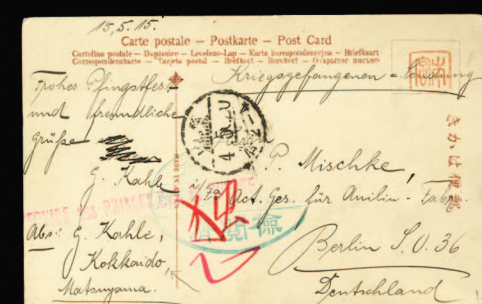 15.5.15.
Carte postale – Postkarte – Post Card
Cartolina postale – Dopisnice – Levelezo-Lap – Karta korespondencyjna – Briefkaart
Correspondenzkarte – Tarjeta postal – Brefkort – Brevkort – Открытое письмо
Kriegsgefangenen – Sendung
Frohes Pfingstfest
und freundliche
Grüße
G. Kahle
Abs: G. Kahle,
Kokkaido,
Matsuyama.
P. Mischke,
Act. Ges. für Anilin-Fabr.
Berlin S.O. 36
Deutschland
きかは便郵